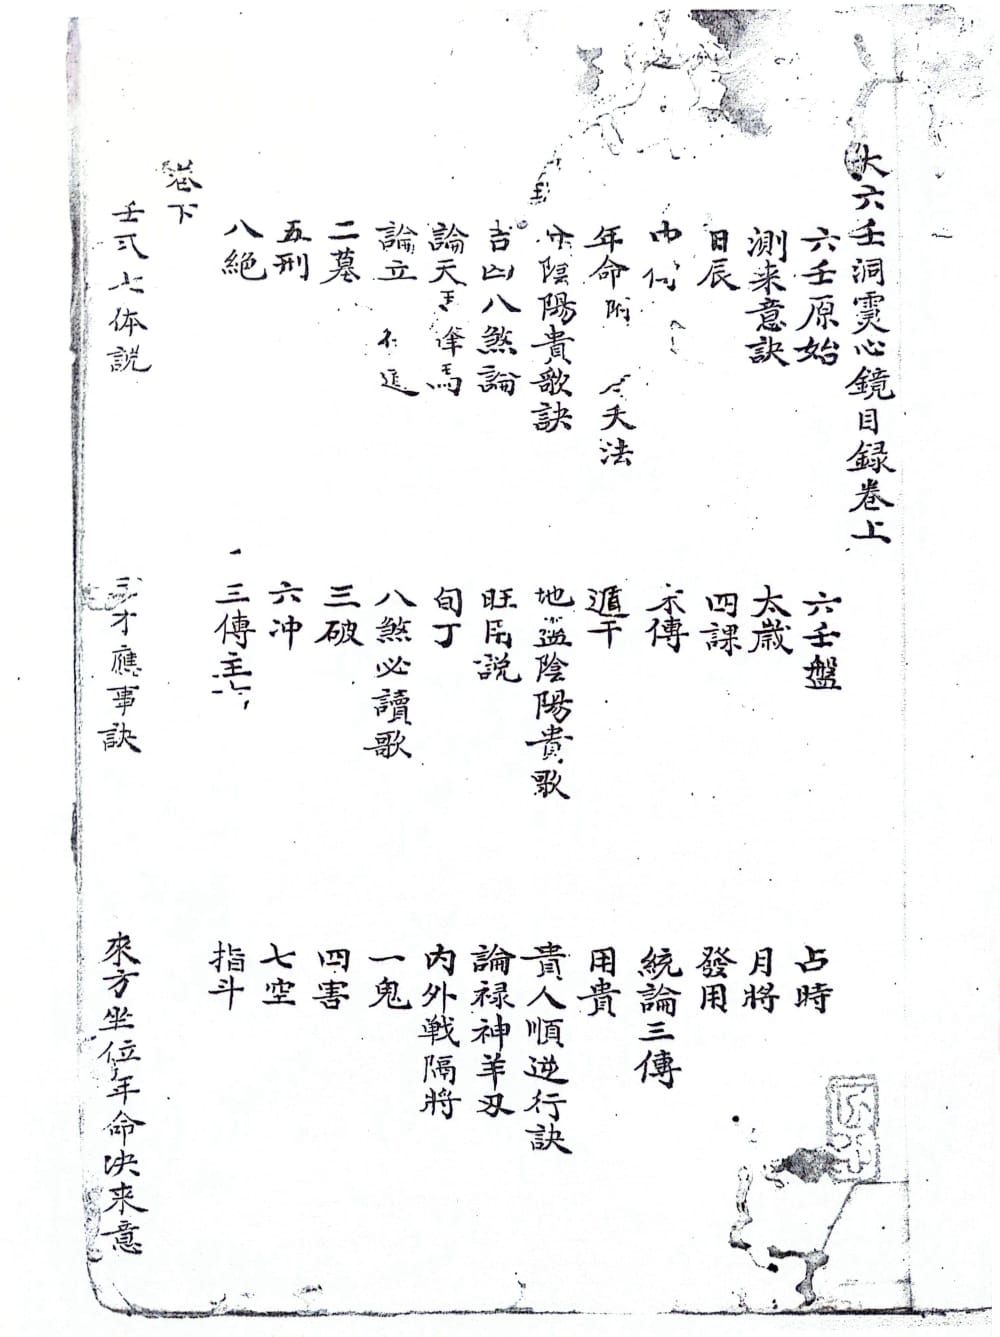 大六壬洞灵心鏡目録卷上
六壬原始 六壬盤 占時
測来意訣 太歲 月將
日辰 四課 發用
傳 統論三傳
年命附 天法 遁干 用貴
陰陽貴歌訣 地盤陰陽貴歌 貴人順逆行訣
吉凶八煞論 旺用説 論禄神羊刃
論天 馬 旬丁 内外戦隔將
論立 八煞必讀歌 一鬼
二墓 三破 四害
五刑 六冲 七空
八絶 三傳主 指斗
卷下
壬式七体説 三才應事訣 來方坐位年命决来意